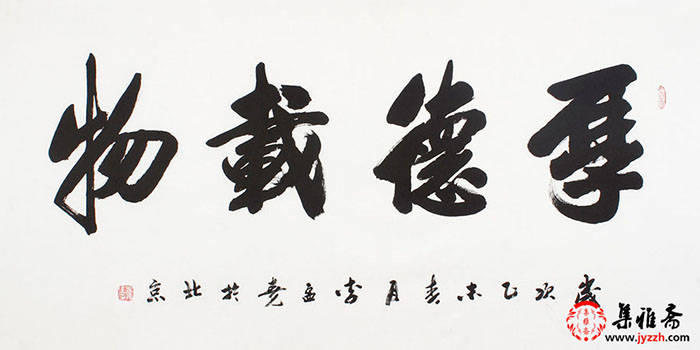 厚德載物
歲次乙未春月李孟尧於北京
集雅斋
www.jyzzh.com